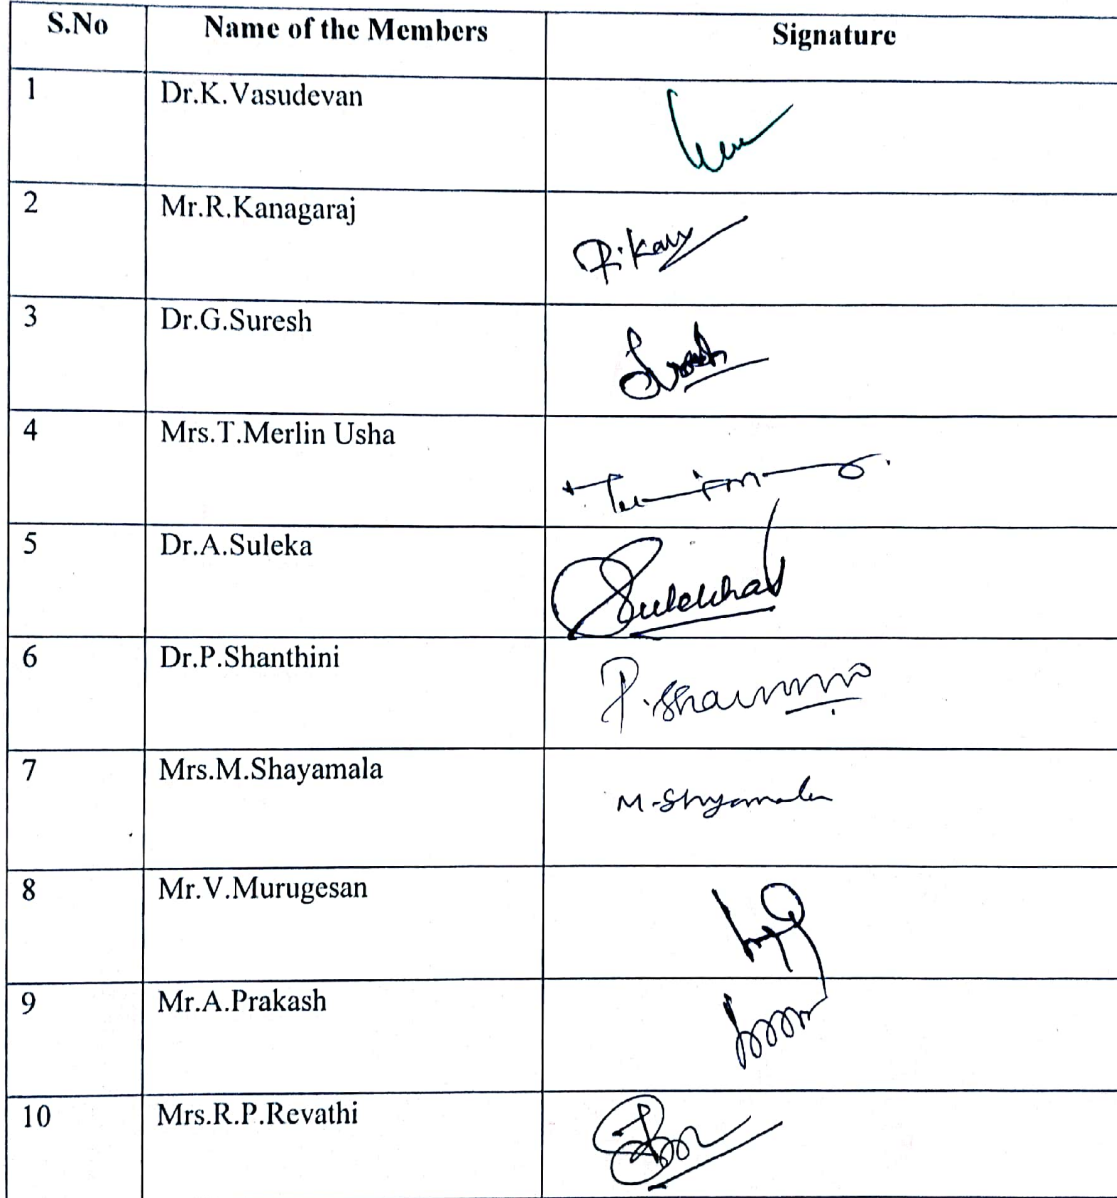 S.No Name of the Members Signature
1 Dr.K.Vasudevan
2 Mr.R.Kanagaraj
3 Dr.G.Suresh
4 Mrs.T.Merlin Usha
5 Dr.A.Suleka Sulekha
6 Dr.P.Shanthini
7 Mrs.M.Shayamala M-Shyamala
8 Mr.V.Murugesan
9 Mr.A.Prakash
10 Mrs.R.P.Revathi